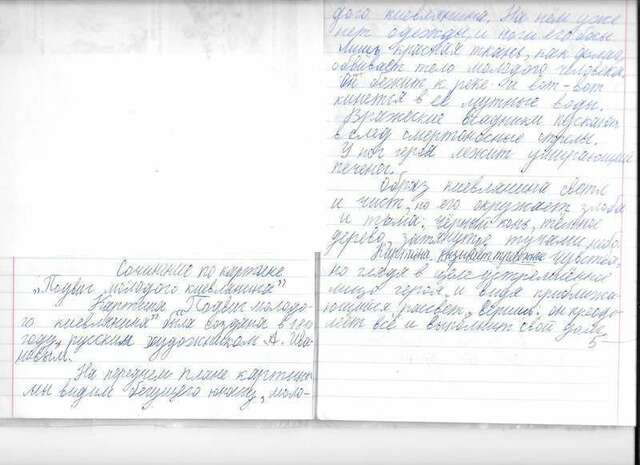 Сочинение по картине
„Подвиг молодого киевлянина"
Картина „Подвиг молодо-
го киевлянина" была создана в
году русским художником А. Ива-
новым.
На переднем плане картины
мы видим бегущего юношу, моло-
дого киевлянина. На нем уже
нет одежды и ноги его босы
Лишь красная ткань, как
обвивает тело молодого человека.
Он бежит к реке и вот-вот
кинется в её мутные воды.
Вражеские всадники пускают
в след смертоносные стрелы.
У ног героя лежит умирающий
печенег.
Образ киевлянина светл
и чист, но его окружает злоба
и тьма: чёрный конь, тёмное
дерево, затянутое тучами небо.
Картина вызывает чувства,
но глядя в устремлённое
лицо героя и видя приближа-
ющийся рассвет, веришь: он преодо-
леет всё и выполнит свой долг.
5-